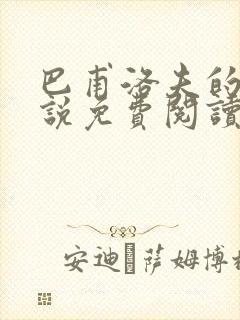 巴甫洛夫的
說免費閱讀
安迪 萨姆博